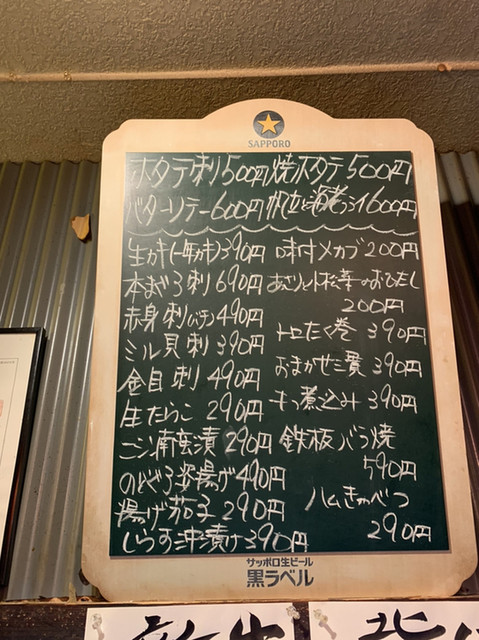 SAPPORO
ホタテ刺500円 焼ホタテ500円
バターソテー600円 帆立と海老フライ600円
生ガキ(一年カキ)390円 味付メカブ200円
本まぐろ刺690円 あさりと小松菜のおひたし
200円
赤身刺 490円 トロたく巻 390円
ミル貝刺 390円 おまかせ三貫 390円
金目刺 490円 モツ煮込み 390円
生たらこ 290円
ニシン南蛮漬 290円 鉄板バラ焼
590円
のどぐろ姿揚げ 490円
揚げ茄子 290円 ハムきゃべつ
290円
しらす沖漬け390円
サッポロ生ビール
黒ラベル